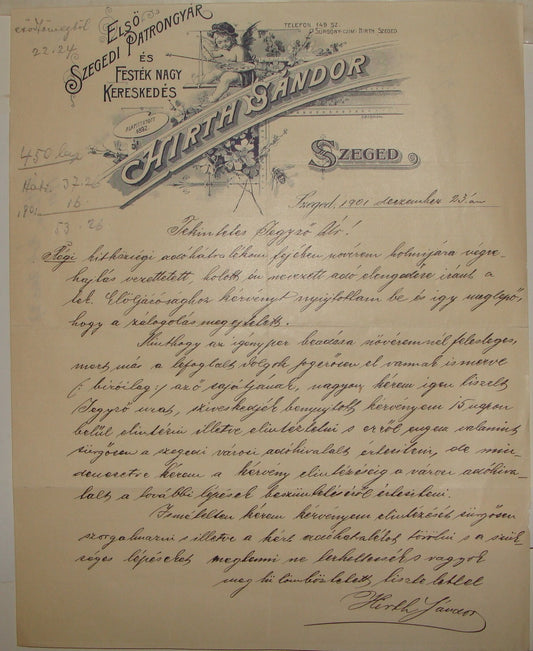 ELSŐ
SZEGEDI PATRONGYÁR
ÉS
FESTÉK NAGY
KERESKEDÉS
TELEFON 149 SZ.
SÜRGÖNYCIM: HIRTH SZEGED
ALAPITTATOTT
HIRTH SÁNDOR
SZEGED
22.24
450
37.26
1901 16
53.26
Szeged, 1901 deczember 23.án
Tekintetes Jegyző Úr!
Régi hitközségi adóhátralékom fejében nővérem holmijára végre-
hajtás vezettetett, holott én nevezett adó elengedése iránt a
tek. Elöljárósághoz kérvényt nyujtottam be és így meglepő,
hogy a zálogolás megejtetett.
Minthogy az igényper beadása nővéremnél felesleges,
mert már a lefoglalt dolgok jogerősen el vannak ismerve
(: biróilag :) az ő sajátjának, nagyon kérem igen tisztelt
Jegyző urat, sziveskedjék benyujtott kérvényem 15 napon
belül elintézni illetve elintéztetni s erről engem valamint
sürgősen a szegedi városi adóhivatalt értesíteni, de min-
denesetre kérem a kérvény elintézéséig a városi adóhiva-
talt a további lépések beszüntetéséről értesíteni.
Ismételten kérem kérvényem elintézését sürgősen
szorgalmazni s illetve a kért adóhátralékot törölni s a szük-
séges lépéseket megtenni ne terheltessék s vagyok
megkülömböztetett tisztelettel
Hirth Sándor